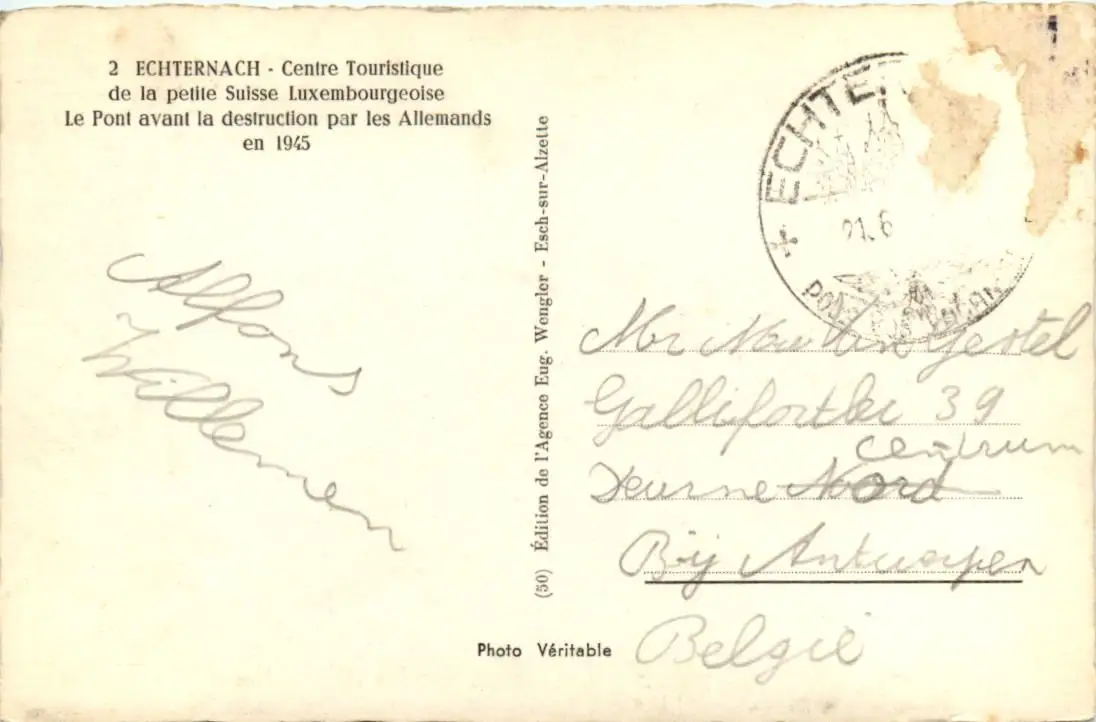 2 ECHTERNACH - Centre Touristique
de la petite Suisse Luxembourgeoise
Le Pont avant la destruction par les Allemands
en 1945
Alfons
Willemen
(50) Édition de l'Agence Eug. Wengler - Esch-sur-Alzette
Photo Véritable
ECHTER
21.6
Mr Gestel
39
centrum
Deurne Nord
Bij Antwerpen
België